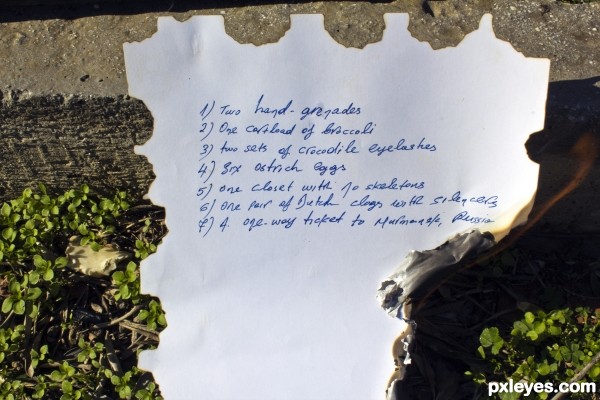 1) Two hand-grenades
2) One carload of broccoli
3) two sets of crocodile eyelashes
4) six ostrich eggs
5) one closet with 10 skeletons
6) one pair of Dutch clogs with silencers
7) A one-way ticket to Murmansk, Russia
pxleyes.com